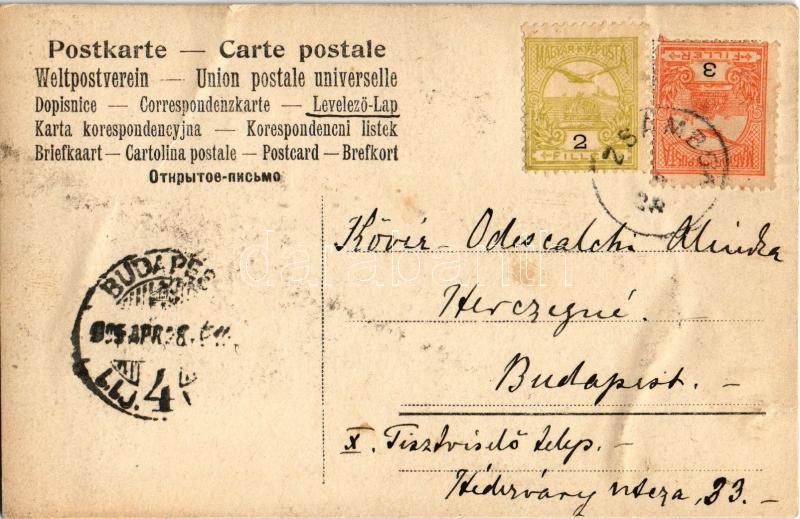 Postkarte — Carte postale
Weltpostverein — Union postale universelle
Dopisnice — Correspondenzkarte — Levelező-Lap
Karta korespondencyjna — Korespondencni listek
Briefkaart — Cartolina postale — Postcard — Brefkort
Открытое-письмо
MAGYAR KIR. POSTA
2
FILLÉR
MAGYAR KIR. POSTA
3
FILLÉR
ZSÁMBOK
28
BUDAPEST
APR 28
4
Kövér-Odescalchi Minka
Herczegné.
Budapest. -
X. Tisztviselő telep. -
Héderváry utcza, 33. -
darabanth